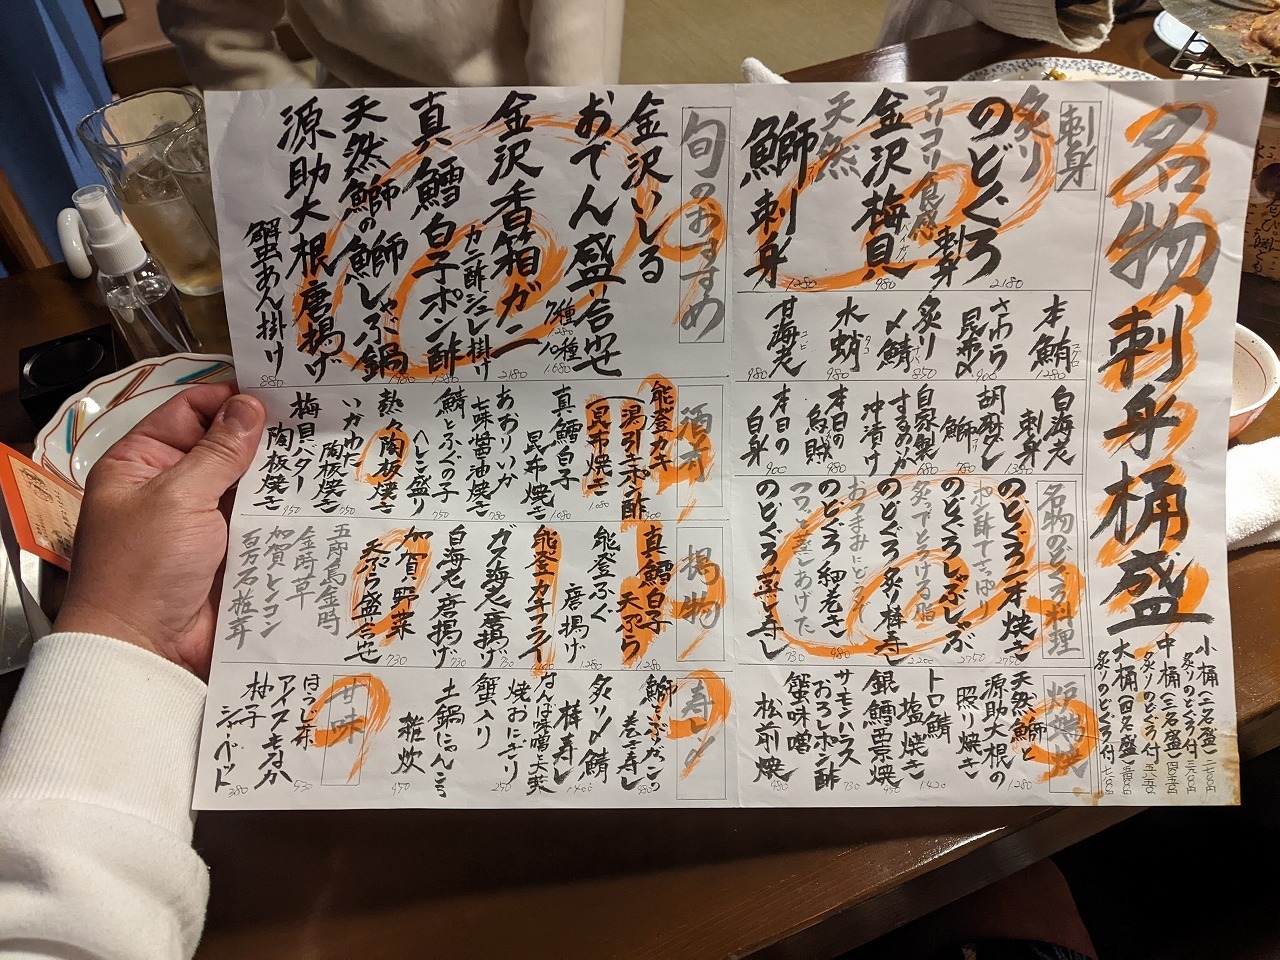 名物刺身桶盛
小桶(二名盛)
炙りのどぐろ付
中桶(三名盛)
炙りのどぐろ付
大桶(四名盛)
炙りのどぐろ付
刺身
炙り
のどぐろ
刺身
2180
コリコリ食感
金沢梅貝
バイガイ
980
天然
鰤刺身
1280
本鮪
1280
さわら
昆布〆
炙り
〆鯖
850
水蛸
タコ
980
甘海老
エビ
980
白海老
刺身
1380
胡麻ダレ
鰤
780
自家製
するめいか
沖漬け
680
本日の
烏賊
980
本日の
白身
900
名物のどぐろ料理
のどぐろ一本焼き
2750
ポン酢でさっぱり
のどぐろしゃぶしゃぶ
2750
炙ってとろける脂
のどぐろ炙り棒寿し
2200
おつまみにどうぞ
のどぐろ細巻き
980
フワッと蒸しあげた
のどぐろ蒸し寿し
730
炉端焼
天然鰤と
源助大根の
照り焼き
1280
トロ鯖
塩焼き
1420
銀鱈西京焼
サーモンハラス
おろしポン酢
730
蟹味噌
松前焼
980
旬のおすすめ
金沢いしる
おでん盛り合わせ
7種
1280
10種
1680
金沢香箱ガニ
カニ酢ジュレ掛け
2180
真鱈白子ポン酢
天然鰤の鰤しゃぶ鍋
源助大根唐揚げ
蟹あん掛け
880
酒肴
能登カキ
潟引きポン酢
昆布焼き
1080
真鱈白子
昆布焼き
1080
あおりいか
七味醤油焼き
780
鯖とふぐの子
へしこ盛り
750
熱々陶板焼き
いかわた
陶板焼き
750
梅貝バター
陶板焼き
950
揚物
真鱈白子
天ぷら
1280
能登ふぐ
唐揚げ
1280
能登カキフライ
ガス海老唐揚げ
730
白海老唐揚げ
730
加賀野菜
天ぷら盛り合わせ
730
五郎島金時
金時草
加賀レンコン
百万石椎茸
寿し〆
巻き寿し
980
炙り〆鯖
棒寿し
1400
なんば味噌大葉
焼おにぎり
250
蟹入り
土鍋にゃんこ
雑炊
950
甘味
ほうじ茶
アイスもなか
530
柚子
シャーベット
380